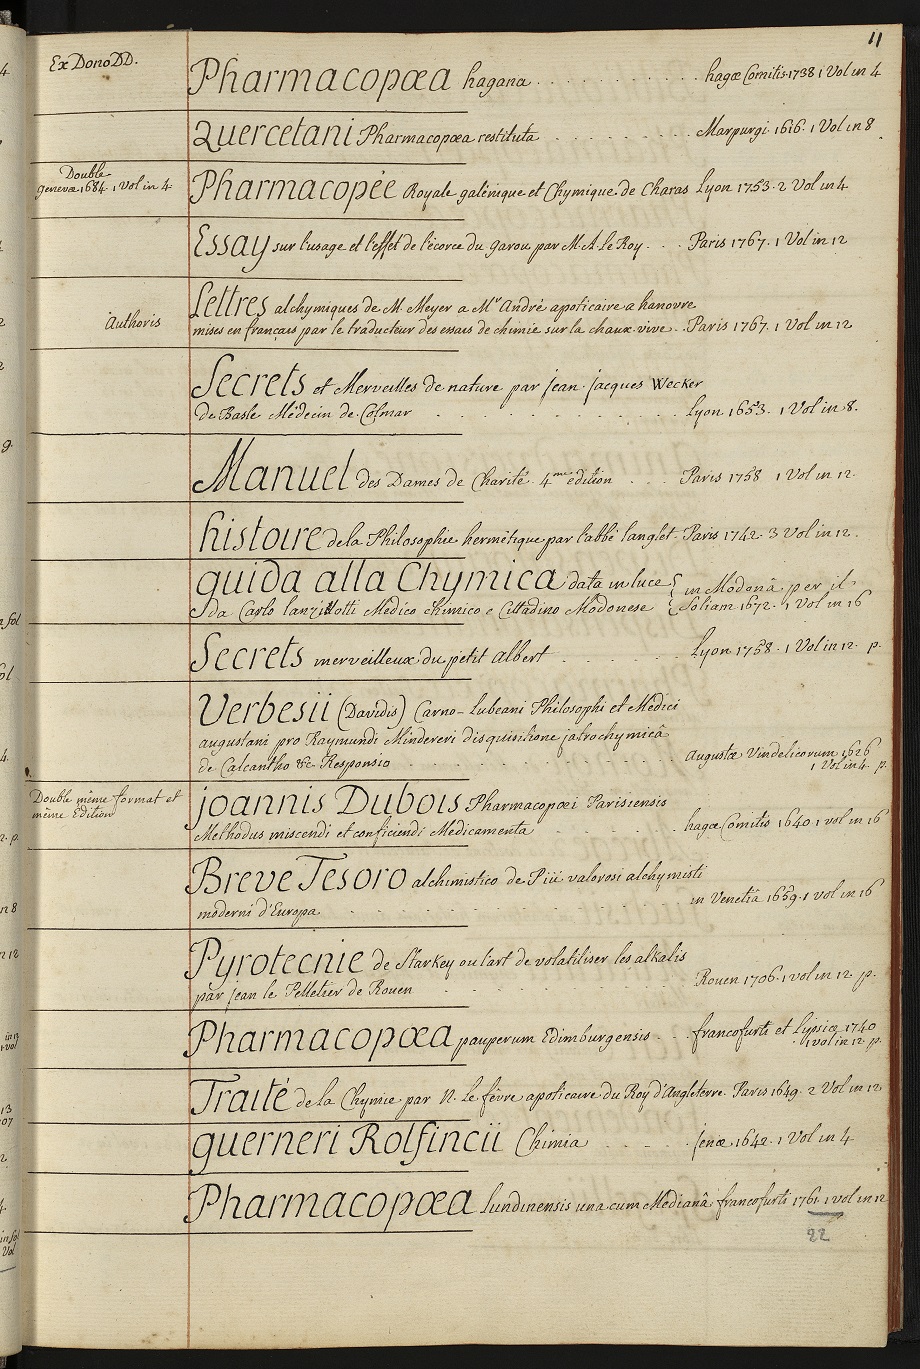 11
Ex Dono DD.
Pharmacopœa hagana . . . . . . . . . . . . hagæ Comitis 1738 1 Vol in 4
Quercetani Pharmacopœa restituta . . . . . . . . . . Marpurgi. 1616. 1 Vol in 8
Double
genevæ 1684. 1 Vol in 4
Pharmacopée Royale galénique et Chymique de Charas Lyon 1753. 2 Vol in 4
Essay sur l'usage et l'effét de l'écorce du garou par M. A. le Roy . . . Paris 1767. 1 Vol in 12
Authoris
Lettres alchymiques de M. Meyer a Mr André apoticaire a hanovre
mises en français par le traducteur des essais de chimie sur la chaux vive . . Paris 1767. 1 Vol in 12
Secrets et Merveilles de nature par jean jacques Wecker
de Basle Médecin de Colmar . . . . . . . . Lyon 1653. 1 Vol in 8.
Manuel des Dames de Charité. 4me edition . . . Paris 1758 1 Vol in 12.
histoire de la Philosophie hermétique par l'abbé langlet. Paris 1742. 3 Vol in 12.
guida alla Chymica data in luce { in Modonâ per il
da Carlo lanzillotti Medico chimico e Cittadino Modonese { Soliani 1672. 1 Vol in 16
Secrets merveilleux du petit albert . . . . . . Lyon 1758. 1 Vol in 12. p.
Verbesii (Davidis) Carno-lubeani Philosophi et Medici
augustani pro Raymundi Mindereri disquisitione jatrochymicâ
de Calcantho &c. Responsio . . . . . . . . . . Augustæ Vindelicorum 1626
1 Vol in 4. p.
Double même format et
même Edition
joannis Dubois Pharmacopœi Parisiensis
Methodus miscendi et conficiendi Medicamenta . . . . . hagæ Comitis 1640 1 vol in 16
Breve Tesoro alchimistico de Piü valorosi alchymisti
moderni d'Europa . . . . . . . . . . . . . in Venetiâ 1659. 1 vol in 16
Pyrotecnie de Starkey ou l'art de volatiliser les alkalis
par jean le Pelletier de Rouen . . . . . . . . . Rouen 1706. 1 vol in 12. p.
Pharmacopœa pauperum Edimburgensis . . . francofurti et Lipsiæ 1740
1 vol in 12. p.
Traité de la Chymie par N. Le fèvre apoticaire du Roy d'Angleterre. Paris 1649. 2 Vol in 12.
guerneri Rolfincii Chimia . . . . . . jenæ 1642. 1 Vol in 4
Pharmacopœa Lundinensis una cum Medianâ francofurti 1761. 1 vol in 12
22